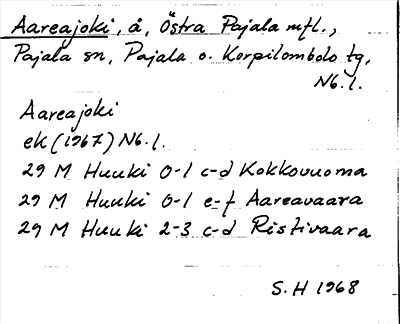 Aareajoki, å, Östra Pajala mfl.,
Pajala sn, Pajala o. Korpilombolo tg,
Nb. l.
Aareajoki
ek (1967) Nb. l.
29 M Huuki 0-1 c-d Kokkovuoma
29 M Huuki 0-1 e-f Aareavaara
29 M Huuki 2-3 c-d Ristivaara
S. H 1968